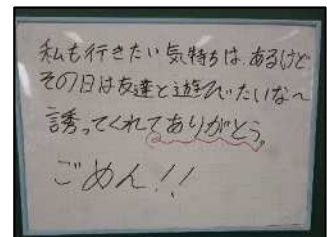 私も行きたい気持ちは、あるけど
その日は友達と遊びたいな〜
誘ってくれてありがとう。
ごめん!!